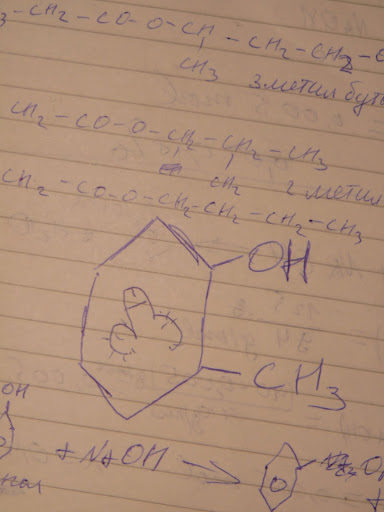 3 - CH2 - CO - O - CH - CH2 - CH2 - C
CH3 3 метил бута
CH2 - CO - O - CH2 - CH2 - CH3
CH2 2 метил
CH2 - CO - O - CH2 - CH2 - CH2 - CH3
OH
CH3
OH
+ NaOH